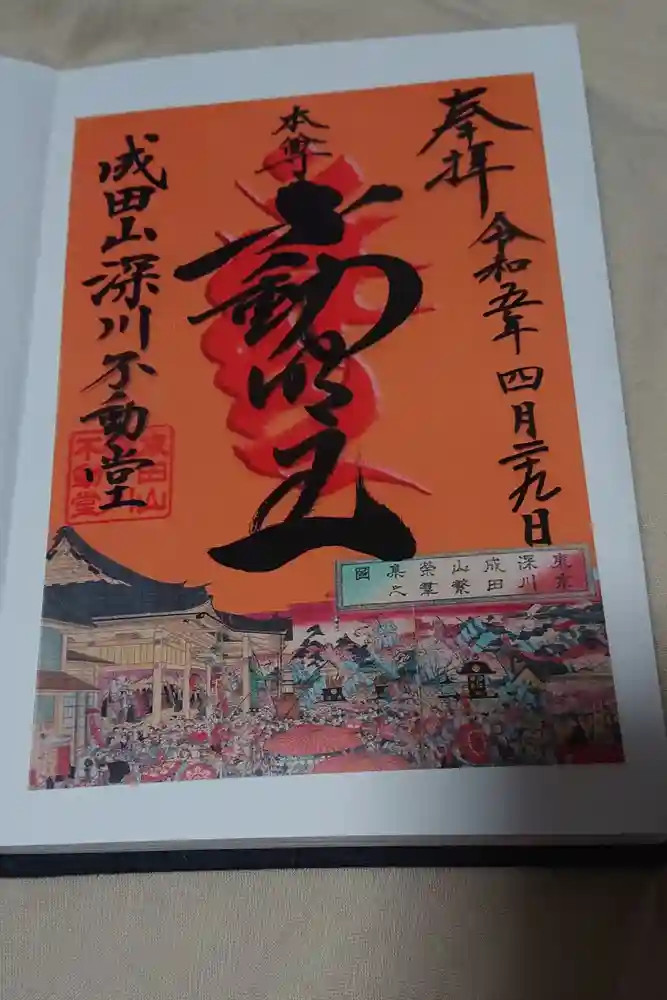 奉拝
令和五年四月二十九日
本尊
不動明王
成田山深川不動堂
成田山
不動堂
東京
深川
成田
山繁
栄群
集之
図